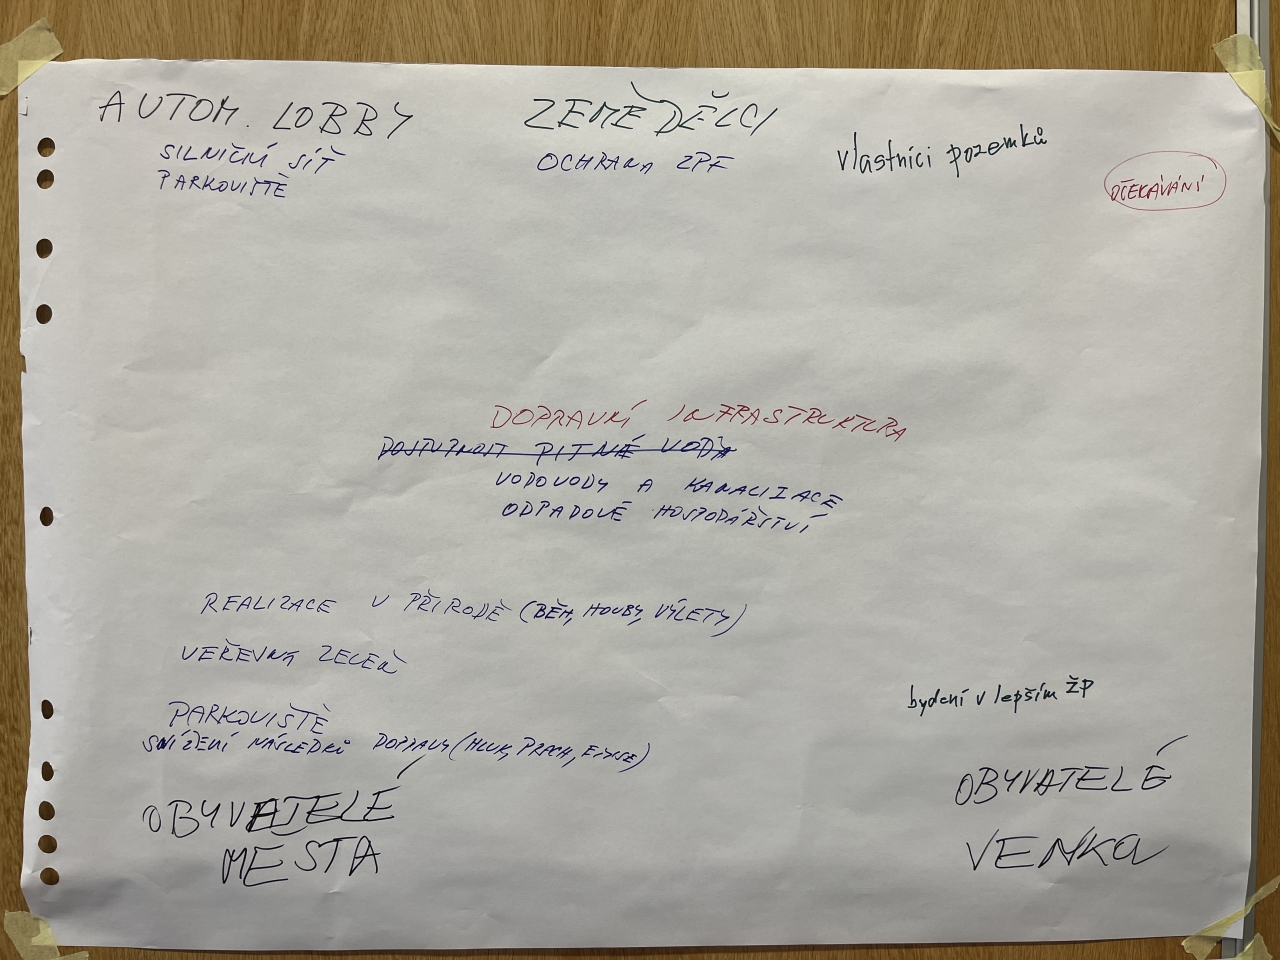 AUTOM. LOBBY
SILNIČNÍ SÍŤ
PARKOVIŠTĚ
ZEMĚDĚLCI
OCHRANA ZPF
vlastníci pozemků
OČEKÁVÁNÍ
DOPRAVNÍ INFRASTRUKTURA
DOSTUPNOST PITNÉ VODY
VODOVODY A KANALIZACE
ODPADOVÉ HOSPODÁŘSTVÍ
REALIZACE V PŘÍRODĚ (BĚH, HOUBY, VÝLETY)
VEŘEVNÁ ZELEŇ
PARKOVIŠTĚ
SNÍŽENÍ NÁSLEDKŮ DOPRAVY (HLUK, PRACH, EMISE)
OBYVATELÉ
MĚSTA
bydení v lepším ŽP
OBYVATELÉ
VENKA